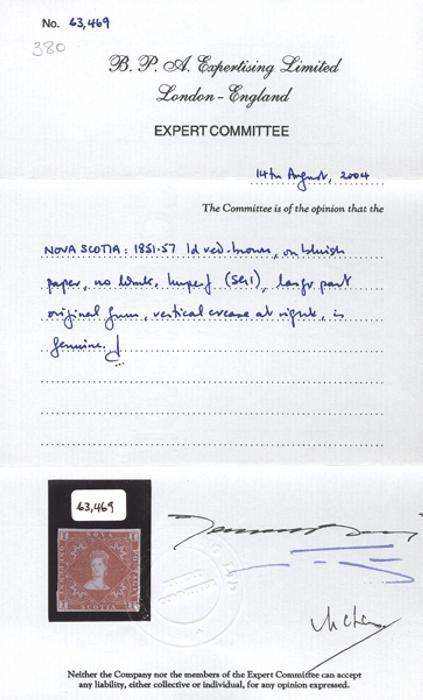 No. 63,469
380
B. P. A. Expertising Limited
London - England
EXPERT COMMITTEE
14th August, 2004
The Committee is of the opinion that the
NOVA SCOTIA: 1851-57 1d red-brown, on bluish
paper, no wmk, imperf (SG1), large part
original gum, vertical crease at right, is
genuine.
63,469
NOVA
SCOTIA
Neither the Company nor the members of the Expert Committee can accept
any liability, either collective or individual, for any opinion expressed.